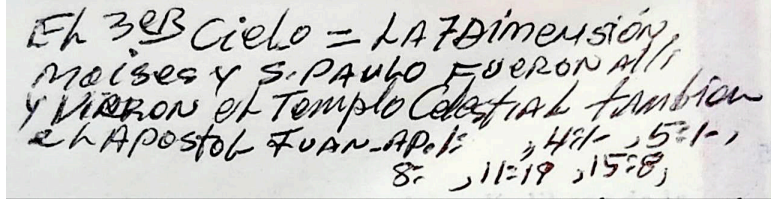 El 3er Cielo = LA 7 Dimensión,
Moises y S. PAULO FUERON Alli
y VIERON el Templo Celestial tambien
el APOSTOL JUAN-AP. 1: , 4:1- , 5:1-,
8: , 11:19 , 15:8,